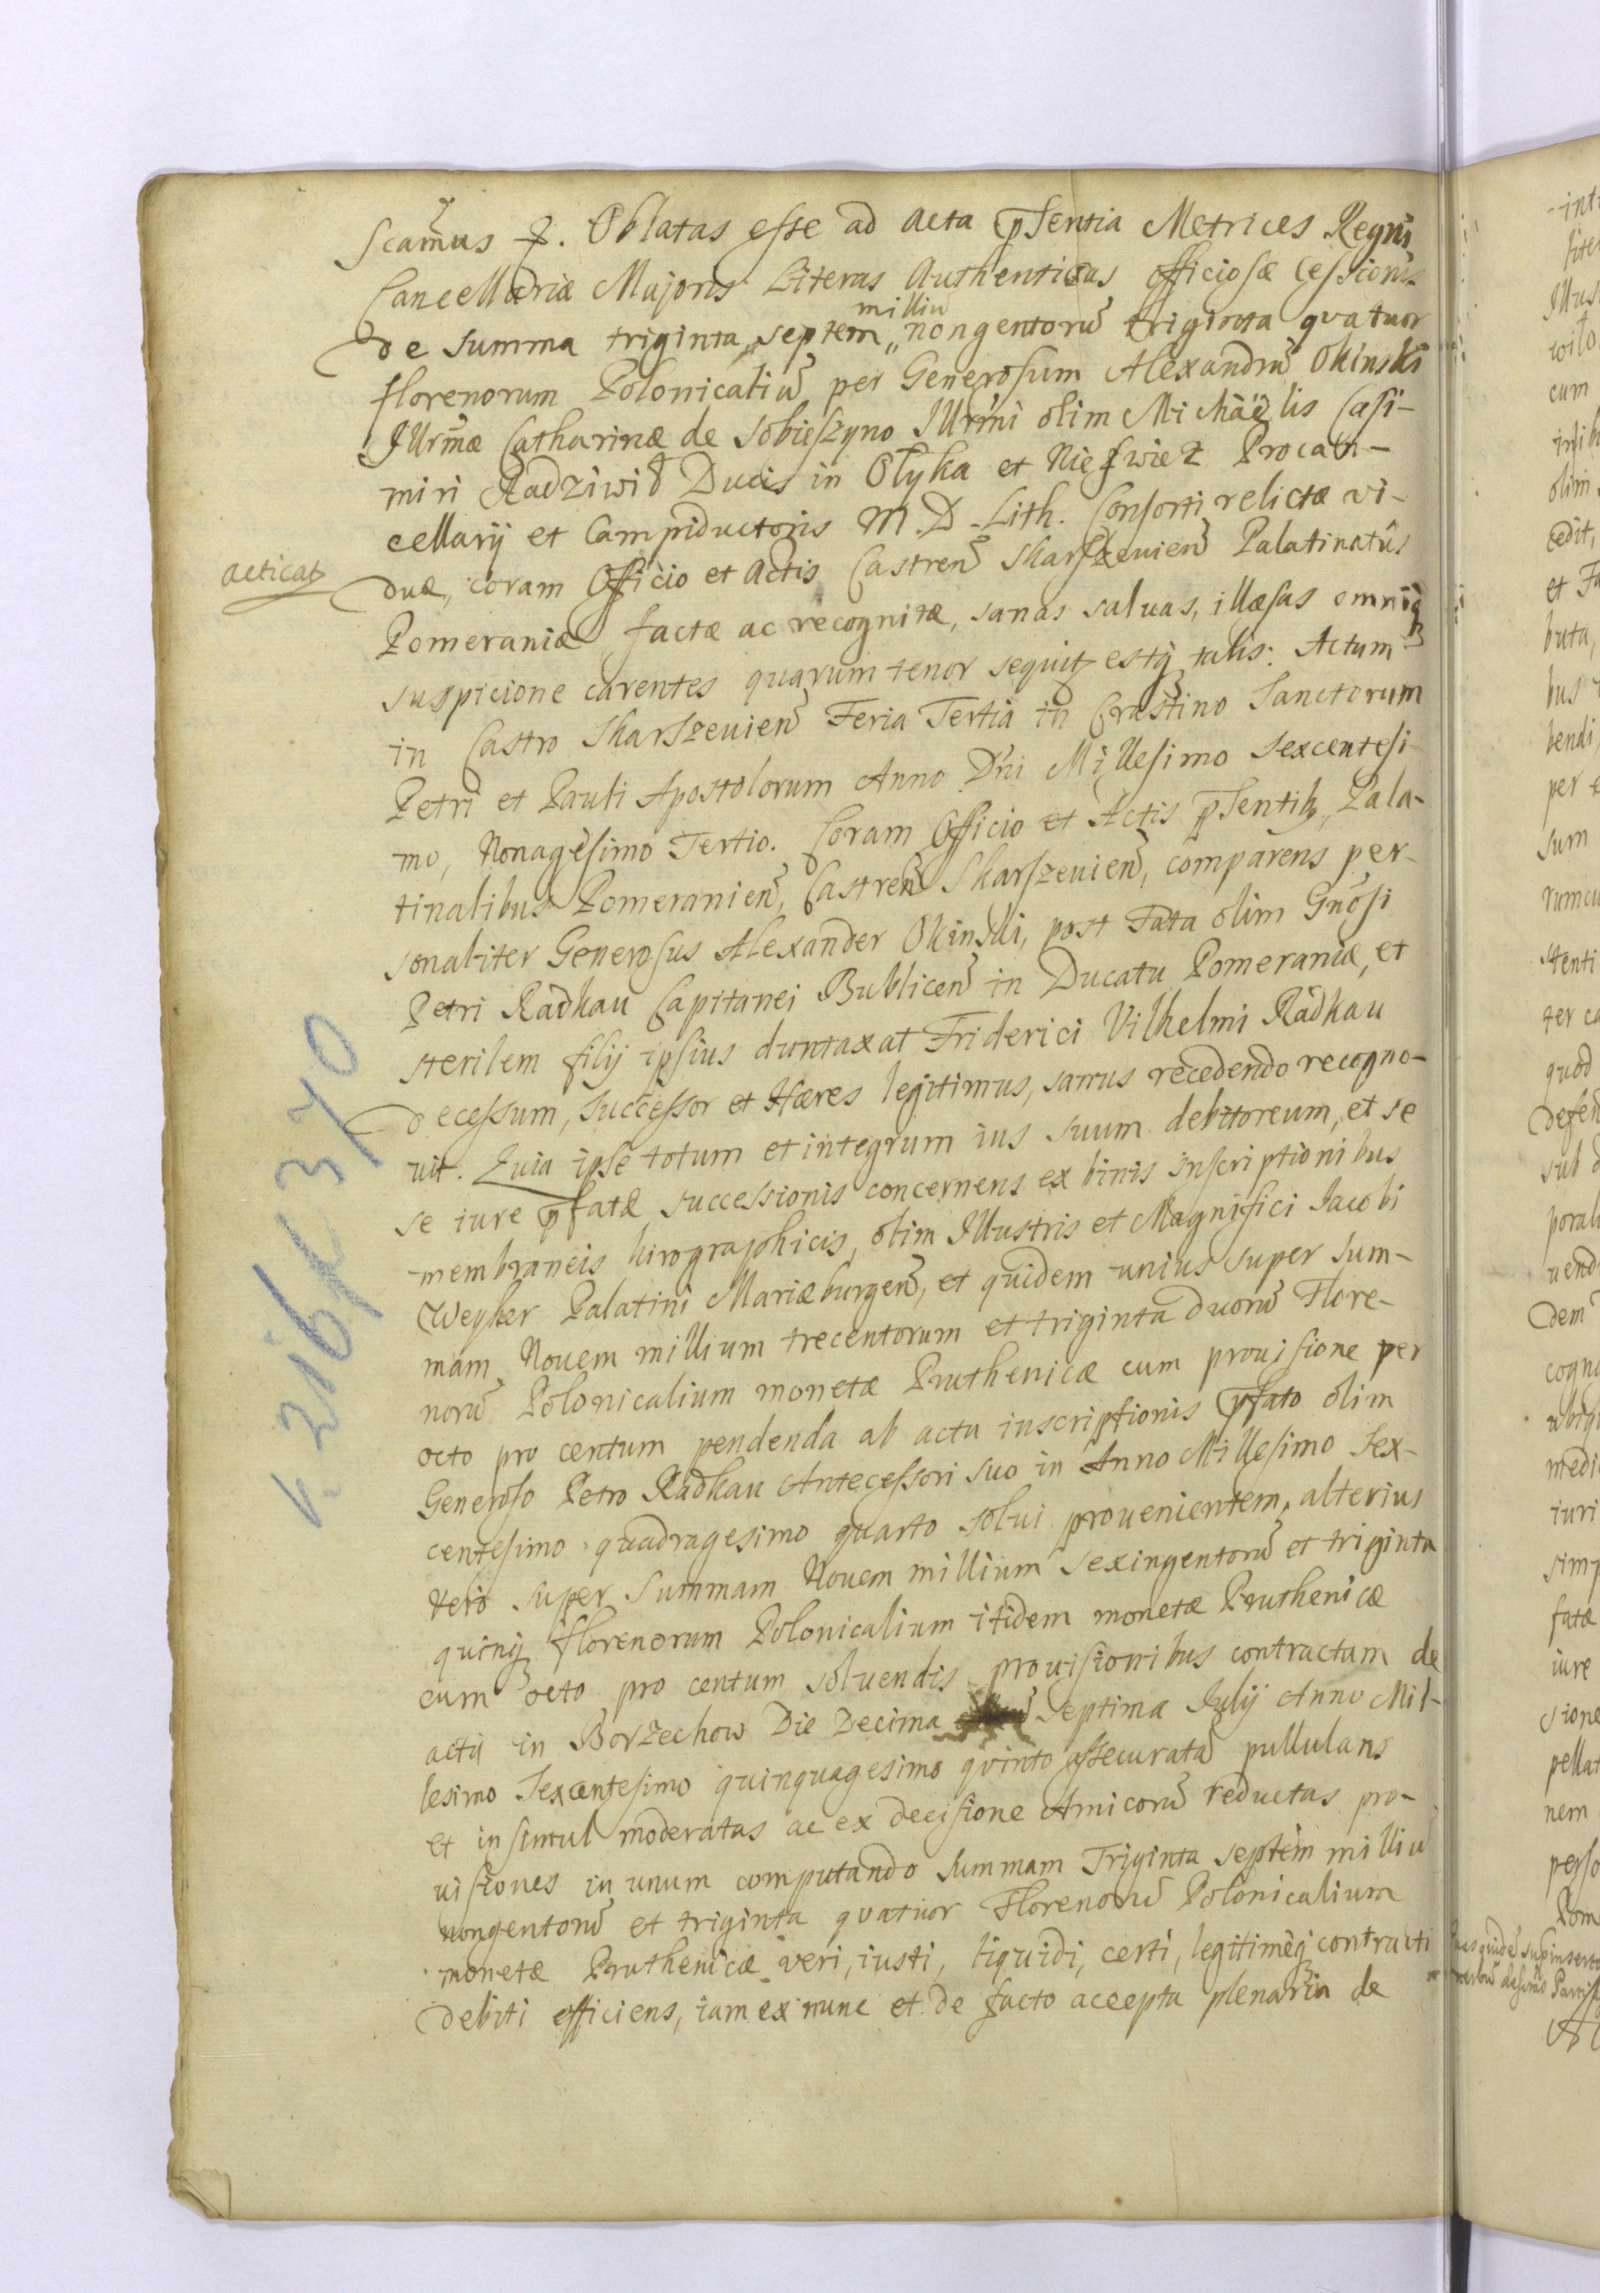 scamus &. Oblatas esse ad Acta pñsentia Metrices Regni
Cancellariæ Majoris Literas Authenticas officiosæ Cessionis
milliũ
de summa triginta septem nongentorũ triginta quatuor
florenorum Polonicaliũ per Generosum Alexandrũ Okinski
Illrmæ Catharinæ de Sobieszyno Illrmi olim Michaëlis Casi-
miri Radziwił Ducis in Ołyka et Nieswież Procan-
cellarij et Campiductoris M. D. Lith. Consorti relictæ vi-
acticat̃
duæ, coram Officio et Actis Castreñ Skarszevieñ Palatinatûs
Pomeraniæ factæ ac recognitæ, sanas saluas, illæsas omniq
suspicione carentes quarum tenor sequit̃ estq talis: Actum
in Castro Skarszevieñ Feria Tertia in Crastino Sanctorum
Petri et Pauli Apostolorum Anno Dñi Millesimo Sexcentesi-
mo, Nonagesimo Tertio. Coram Officio et Actis pñsentib, Pala-
tinalibus Pomeranieñ, Castreñ Skarszevieñ, comparens per-
sonaliter Generosus Alexander Okinski, post Fata olim Gñosi
Petri Radkau Capitanei Bubliceñ in Ducatu Pomeraniæ, et
sterilem filij ipsius duntaxat Friderici Vilhelmi Radkau
decessum, successor et Hæres legitimus, sanus recedendo recogno-
uit. Quia ipse totum et integrum ius suum debitoreum, et se
se iure pfatæ successionis concernens ex binis inscriptionibus
membraneis kirographicis, olim Illustris et Magnifici Iacobi
Weyher Palatini Mariæburgeñ, et quidem unius super sum-
mam Nouem millium trecentorum et triginta duorũ Flore-
norũ Polonicalium monetæ Pruthenicæ cum prouisione per
octo pro centum pendenda ab actu inscriptionis pfato olim
Generoso Petro Radkau Antecessori suo in Anno Millesimo Sex-
centesimo quadragesimo quarto solui prouenientem, alterius
vero super Summam Nouem millium sexingentorũ et triginta
quinq florenorum Polonicalium itidem monetæ Pruthenicæ
cum octo pro centum soluendis prouisionibus contractam de
actu in Borzechow Die Decima Septima Iulij Anno Mil-
lesimo Sexcentesimo quinquagesimo quinto assecuratã pullulans
et insimul moderatas ac ex decisione Amicorũ reductas pro-
uisiones in unum computando summam Triginta septem milliũ
nongentorũ et triginta quatuor Florenorũ Polonicalium
monetæ Pruthenicæ veri, iusti, liquidi, certi, legitimeq contracti
debiti efficiens, iam ex nunc et de facto accepta plenaria de